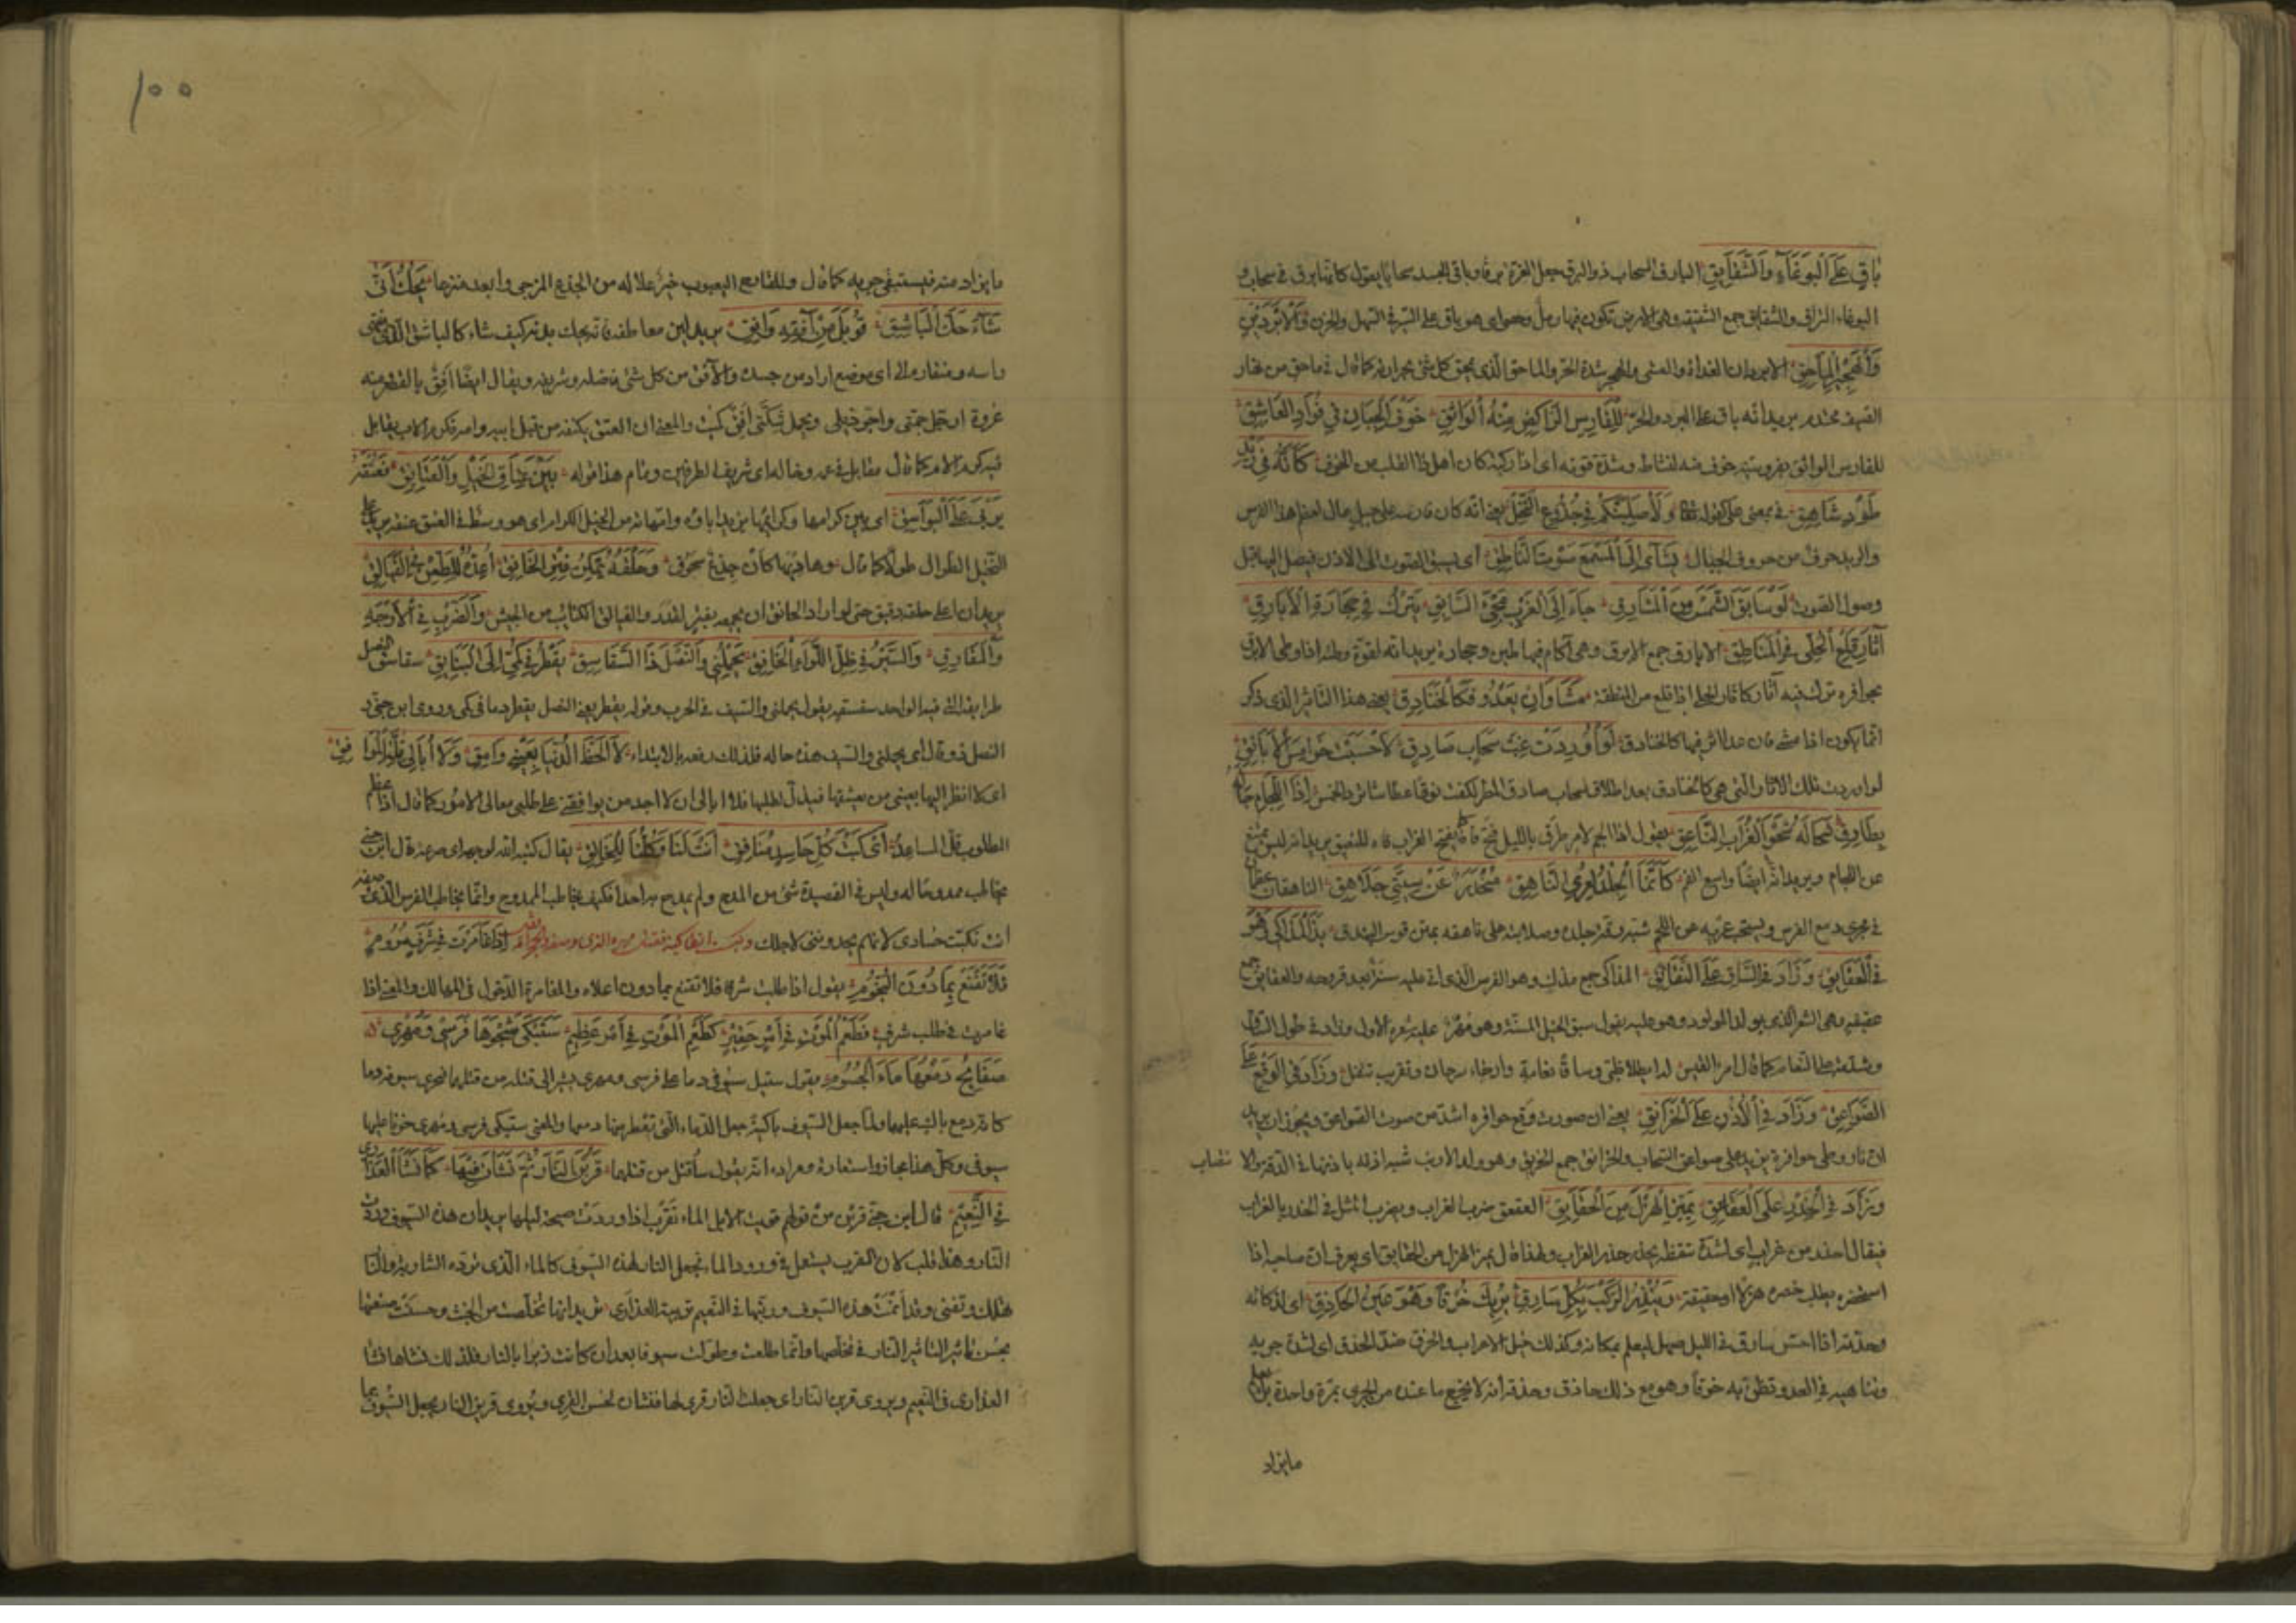 باق على البوغاء والشقايق البارق السحاب ذو البرق جعل الغرة برقا وباقي الجسد سحابا يقول كانها برق في سحاب و
البوغاء التراب والشقايق جمع الشقيقة وهي الارض تكون فيها رمل وحصى اي هو باق على السير في السهل والحزن والابردين
والهجير الماحق الابردان الغداة والعشي والهجير شدة الحر والماحق الذي يمحق كل شئ بحرارته كما قال في ماحق من نهار
الصيف محتدم يريد انه باق على البرد والحر للفارس الراكض منه الواثق خوف الجبان في فؤاد العاشق
للفارس الواثق بفروسيته خوف منه لنشاطه وشدة قوته اي اذا ركبه كان اهل ذا القلب من الخوف كانه في ريد
طود شاهق في بمعنى على كقوله ولاصلبنكم في جذوع النخل يعني انه كان فارسه على جبل عال لعظم هذا الفرس
والريد حرف من حروف الجبال يشأى الى المسمع صوت الناطق اي يسبق الصوت الى الاذن فيصل اليها قبل
وصول الصوت لو سابق الشمس من المشارق جاء الى الغرب مجيء السابق يترك في حجارة الابارق
آثار قلع الحلى في المناطق الابارق جمع الابرق وهي آكام فيها طين وحجارة يريد انه لقوة وطئه اذا وطى الابرق
بحوافره ترك فيه آثارا كآثار الحلي اذا قلع من المنطقة مشيا وان يعد فكالخنادق يعني هذا التاثير الذي ذكر
انما يكون اذا مشى فان عدا اثر فيها كالخنادق لو اوردت غب سحاب صادق لاحسبت خوامس الايانق
لو اوردت تلك الاثار التي هي كالخنادق بعد اطلاق سحاب صادق المطر لكفت نوقا عطاشا ترد الخمس اذا اللجام جاءه
لطارق شحا له شحو الغراب الناعق يقول اذا الجم لامر طرق بالليل فتح فاه كما يفتح الغراب فاه للنعيق يريد انه ليس يمتنع
عن اللجام ويريد انه ايضا واسع الفم كانما الجلد لعري الناهق منحدر عن سيتي جلاهق الناهقان عظمان
في مجرى دمع الفرس ويستحب عريه من اللحم شبه رقة جلده وصلابته على ناهقه بمتن قوس البندق بذ المذاكي وهو
في العقايق وزاد في الساق على النقانق المذاكي جمع مذك وهو الفرس الذي اتى عليه سنة بعد قروحه والعقايق جمع
عقيقة وهي الشعر الذي يولد المولود وهو عليه يقول سبق الخيل المسنة وهو مهر عليه شعره الاول وزاد في طول الساق
وشدته على النعام كما قال امرؤ القيس له ايطلا ظبي وساقا نعامة وارخاء سرحان وتقريب تتفل وزاد في الوقع على
الصواعق وزاد في الاذن على الخرانق يعني ان صوت وقع حوافره اشد من صوت الصواعق ويجوز ان يريد
ان نار وطى حوافره يزيد على صواعق السحاب والخرانق جمع الخرنق وهو ولد الارنب شبه اذنه باذنها في الدقة والا نتصاب
وزاد في الحذر على العقاعق يميز الهزل من الحقايق العقعق ضرب الغراب ويضرب المثل في الحذر بالغراب
فيقال احذر من غراب اي لشدة تيقظه يحذر حذر الغراب ولهذا قال يميز الهزل من الحقايق اي يعرف ان صاحبه اذا
استحضره يطلب حضره هزلا او حقيقة وينذر الركب بكل سارق يريك خرقا وهو عين الحاذق اي لذكائه
وحذقه اذا احس سارق في الليل صهل ليعلم بمكانه وكذلك خيل الاعراب والخرق ضد الحذق اي لشدة جريه
وتناهيه في العدو تظن به خرقا وهو مع ذلك حاذق وحذقه انه لا يخرج ما عنده من الجري بمرة واحدة
مايزاد
١٠٠
مايزاد منه فيستبقي جريه كما قال وللقارح اليعبوب خير علالة من الجذع المزجى وابعد منزعا يحك انى
شاء حك الباشق قوبل من آفقة وافق يريد لين معاطفه فانه يحك بدنه كيف شاء كالباشق الذي
راسه ومنقاره الى اي موضع اراد من جسده والآفق من كل شئ فاضله وشريفه ويقال ايضا افق بالقصر منه
عروة ارجل جمتي واجر ذيلي ويحمل شكتي افق كميت والمعنى ان العتق يكتنفه من قبل ابيه وامه فكرم الاب يقابل
فيه كرم الام كما قال مقابل في عمه وخاله اي شريف الطرفين وتمام هذا قوله بين عتاق الخيل والعتايق فعنقه
يربي على البواسق اي بين كرامها وكرائمها يريد اباؤه وامهاته من الخيل الكرام اي هو وسط في العتق عنقه يزيد على
النخيل الطوال طولا كما قال وهاديها كان جذع سحوق وحلقه يمكن فتر الخانق اعده للطعن في الفيالق
يريد ان اعلى حلقه دقيق حتى لو اراد الخانق ان يجمعه بفتره لقدر والفيالق الكتايب من الجيش والضرب في الاوجه
والمفارق والسير في ظل اللواء الخافق يحملني والنصل ذا السفاسق يقطر في كمي الى البنايق سفاسق النصل
طرايقه التي فيه الواحد سفسقة يقول يحملني والسيف في الحرب وقوله يقطر يعني النصل يقطر دما في كمي وروى ابن جني
النصل ذو وقال اي يحملني والسيف هذه حاله فلذلك رفعه بالابتداء لا الحظ الدنيا بعيني وامق ولا ابالي قلة الموا فق
اي لا انظر اليها بعيني من يعشقها فيذل لطلبها فلا ابالي ان لا اجد من يوافقني على طلبي معالي الامور كما قال اذا عظم
المطلوب قل المساعد اي كبت كل حاسد منافق انت لنا وكلنا للخالق يقال كبته الله لوجهه اي صرعه قال ابن جني
يخاطب ممدوحا له وليس في القصيدة شئ من المدح ولم يمدح بها احدا فكيف يخاطب الممدوح وانما يخاطب الفرس الذي وصفه
انت تكبت حسادي لانهم يحسدونني لاجلك اذا غامرت في شرف مروم
فلا تقنع بما دون النجوم يقول اذا طلبت شرفا فلا تقنع بما دون اعلاه والمغامرة الدخول في المهالك والمعنى اذا
غامرت في طلب شرف فطعم الموت في امر حقير كطعم الموت في امر عظيم ستبكي شجوها فرسي ومهري
صفايح دمعها ماء الجسوم يقول ستبل سيوفي دما على فرسي ومهري يشير الى قتله من قتلهما فتجري سيوفه دما
كانه دمع باك عليهما ولما جعل السيوف باكية جعل الدماء التي تقطر منها دمعا والمعنى ستبكي فرسي ومهري حزنا عليهما
سيوفي وكل هذا مجاز واستعارة ومراده انه يقول ساقتل من قتلهما قربن النار ثم نشان فيها كما نشا العذارى
في النعيم قال ابن جني قربن من قولهم قربت الابل الماء تقرب اذا وردت صبيحة ليلها يريد ان هذه السيوف وردت
النار وهذا قلب لان القرب يستعمل في ورود الماء فجعل النار لهذه السيوف كالماء الذي ترده الشاربة والنا
تهلك وتفني وقد انمت هذه السيوف وربتها في النعيم تربية العذارى يريد انها تخلصت من الخبث وحسنت صنعتها
بحسن تاثير النار في تخلصها وانما طلعت وطولت سيوفا بعد ان كانت زبرا بالنار فلذلك نشاها نشا
العذارى في النعيم ويروى قرين النار اي جعلت النار قرى لها فنشان لحسن القري ويروى قرين النار بجعل السيوف